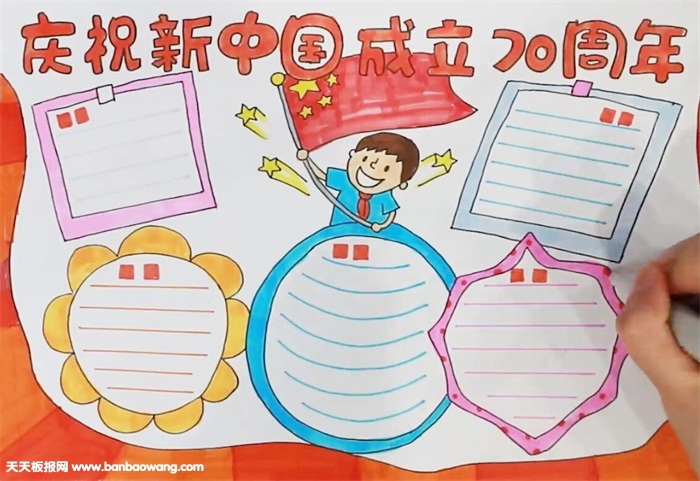 庆祝新中国成立70周年
天天板报网 www.banbaowang.com